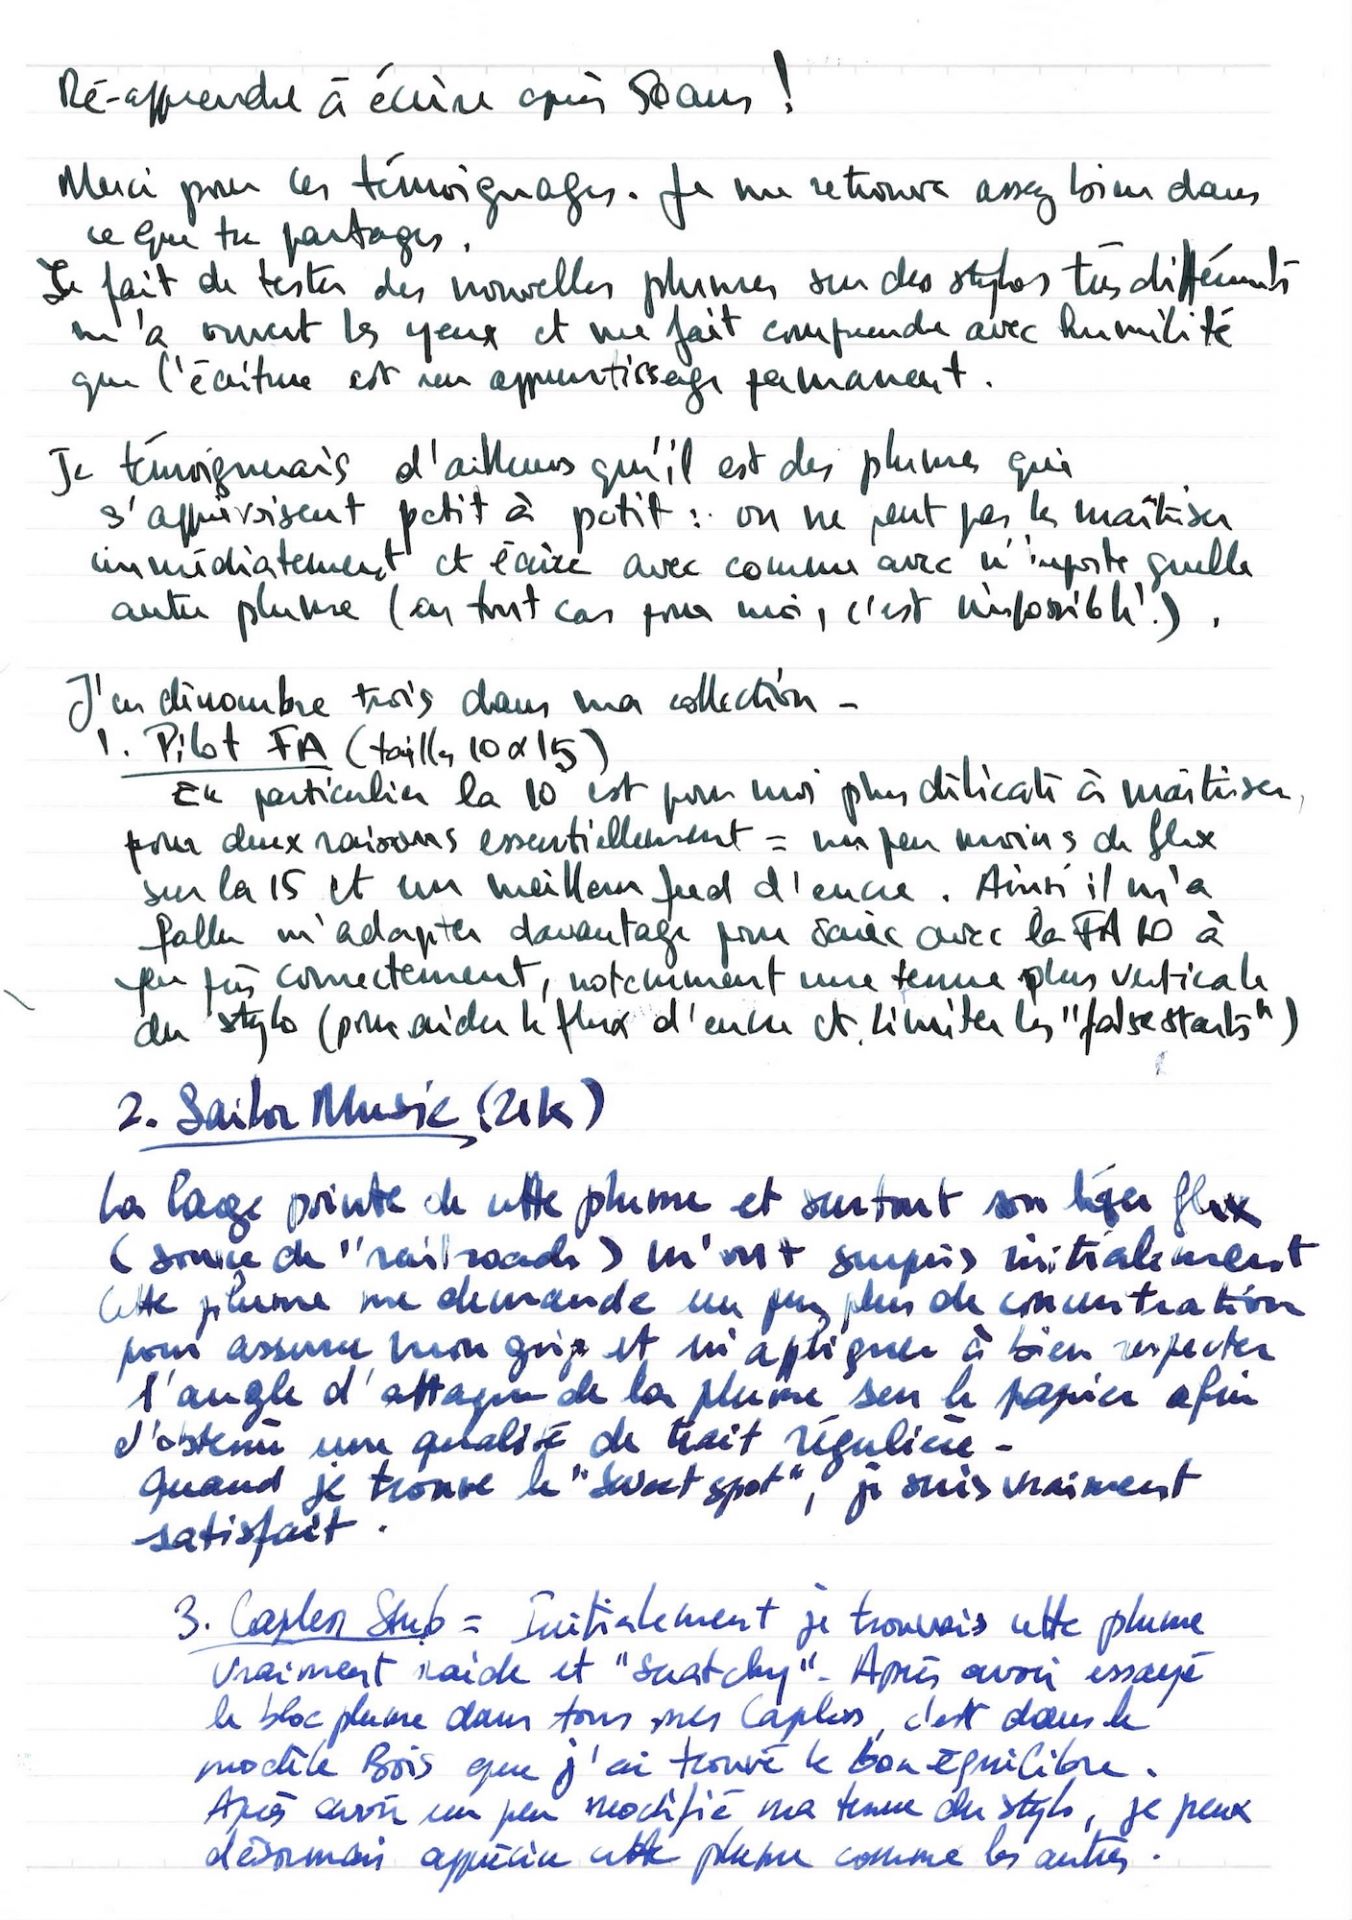 Ré-apprendre à écrire après 50 ans !
Merci pour ces témoignages. Je me retrouve assez bien dans
ce que tu partages.
Le fait de tester des nouvelles plumes sur des stylos très différents
m'a ouvert les yeux et me fait comprendre avec humilité
que l'écriture est un apprentissage permanent.
Je témoignerais d'ailleurs qu'il est des plumes qui
s'apprivoisent petit à petit : on ne peut pas les maîtriser
immédiatement et écrire avec comme avec n'importe quelle
autre plume (en tout cas pour moi, c'est impossible !) .
J'en dénombre trois dans ma collection -
1. Pilot FA (tailles 10 & 15)
En particulier la 10 est pour moi plus délicate à maîtriser,
pour deux raisons essentiellement = un peu moins de flex
sur la 15 et un meilleur feed d'encre. Ainsi il m'a
fallu m'adapter davantage pour écrire avec la FA 10 à
peu près correctement, notamment une tenue plus verticale
du stylo (pour aider le flux d'encre et limiter les "false starts")
2. Sailor Music (21k)
La large pointe de cette plume et surtout son léger flex
(source de "railroads") m'ont surpris initialement
Cette plume me demande un peu plus de concentration
pour assurer mon grip et m'appliquer à bien respecter
l'angle d'attaque de la plume sur le papier afin
d'obtenir une qualité de trait régulière -
Quand je trouve le "sweet spot", je suis vraiment
satisfait .
3. Capless Stub = Initialement je trouvais cette plume
vraiment raide et "scratchy" - Après avoir essayé
le bloc plume dans tous mes Capless, c'est dans le
modèle Bois que j'ai trouvé le bon équilibre .
Après avoir un peu modifié ma tenue du stylo, je peux
désormais apprécier cette plume comme les autres .